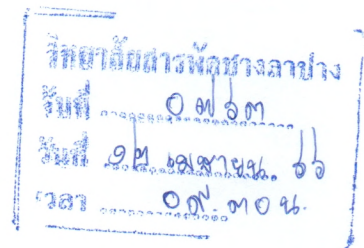 วิทยาลัยสารพัดช่างลำปาง
รับที่ ๐๗๖๓
วันที่ ๑๒ เมษายน. ๖๖
เวลา ๐๙.๓๐ น.